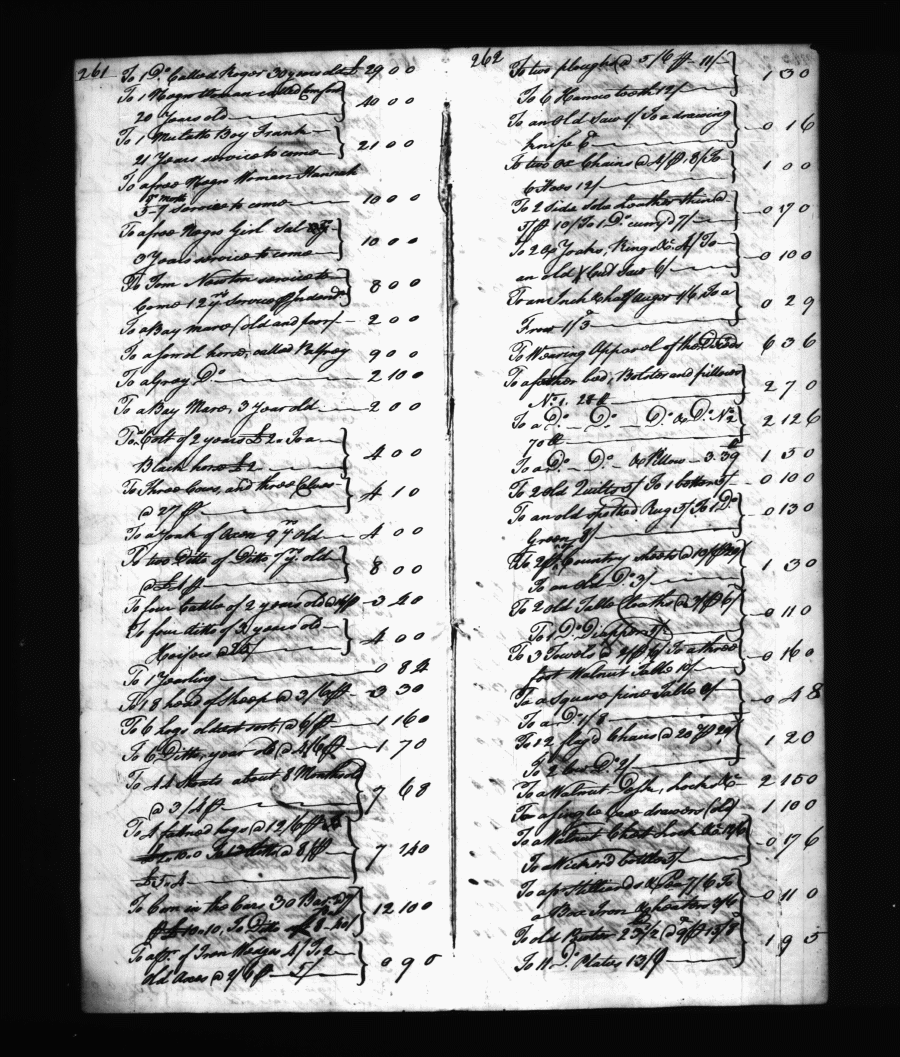 261
To 1 Do. Called Roger 30 years old £ 29 0 0
To 1 Negro Woman called
20 Years old 40 0 0
To 1 Mulato Boy Frank
21 Years service to come 21 0 0
To a free Negro Woman Hannah
service to come 10 0 0
To a free Negro Girl Sal
9 Years service to come 10 0 0
To Tom Newton service to
Come 12 yrs. Service 8 0 0
To a Bay mare (old and poor) 2 0 0
To a sorrel horse, called Palfrey 9 0 0
To a Gray Do 2 10 0
To a Bay Mare, 3 Year old 2 0 0
To a Colt of 2 years £2. To a
Black horse £2 4 0 0
To Three Cows, and three Calves
@ 27/ ℔ 4 1 0
To a Yoak of Oxen 9 yr old 4 0 0
To two Ditto of Ditto 7 yr. old
@ £4 ℔ 8 0 0
To four Cattle of 2 years old 3 4 0
To four ditto of 3 years old
Heifers @ 20/ 4 0 0
To 1 Yearling 0 8
To 18 head of sheep @ 3/6 ℔ 3 3 0
To 6 hogs oldest sort, @ 6/ ℔ 1 16 0
To 6 Ditto, year old @ 4/6 ℔ 1 7 0
To 44 Shoats about 8 Months old
@ 3/4 ℔ 7 6 8
To 4 fatned hogs @ 12/6 ℔
@ 8/ ℔
£5..4 7 14 0
To Corn in the Ears 30 Bar.
10..10, To Ditto 12 10 0
of Iron Wedges 4/ To 2
Old Axes @ 2/6 ℔ 5/ 0 9 0
262
To two ploughs @ 5/6 ℔ 11/
To 6 Harrow teeth 12/ 1 3 0
To an Old Saw 1/ To a drawing
knife 6d 0 1 6
To two Ox Chains @ 4/ ℔ 8/ To
6 Hoes 12/ 1 0 0
To 2 Sides Sole Leather
5/ ℔ 10/ To 1 Do. curry'd 7/ 0 17 0
To 2 Ox Yoaks, Rings &c. 4/ To
an old X Cut Saw 6/ 0 10 0
To an Inch & half Auger 1/6, To a
Frow 1/3 0 2 9
To Wearing Apparel of the Deced 6 3 6
To a feather bed, Bolster and pillows
No. 1. 2 7 0
To a Do. Do. Do. & Do. No. 2
70 ℔ 2 12 6
To a Do. Do. & Pillow 3. 39 1 5 0
To 2 old Quilts 5/ To 1 5/ 0 10 0
To an old spotted Rug 5/ To 1 Do.
Green 8/ 0 13 0
To 2 Country sheets @ 10/ ℔ 20/
To an old Do. 3/ 1 3 0
To 2 old Table Cloaths @ 3/ ℔ 6/
To 1 Do. Diapper 5/ 0 11 0
To 3 Towels @ 2/ ℔ 6/ To a three
foot Walnut Table 10/ 0 16 0
To a Square pine Table 3/
To a Do. 1/8 0 4 8
To 12 flag'd Chairs @ 20d ℔ 20/
To 2 low Do. 2/ 1 2 0
To a Walnut Desk, Lock &c 2 15 0
To a single case drawers (old) 1 10 0
To a Walnut Chest Lock &c.
To a Wicker'd bottle 5/ 0 7 6
To a pr. Stilliards & Pea 7/6 To
a Box Iron & heaters 3/6 0 11 0
To old Pewter
To 11 Do. Plates 13/9 1 9 5